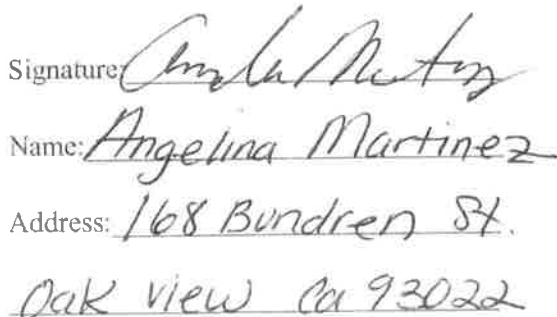 Signature:
Name: Angelina Martinez
Address: 168 Bundren St.
Oak View Ca 93022